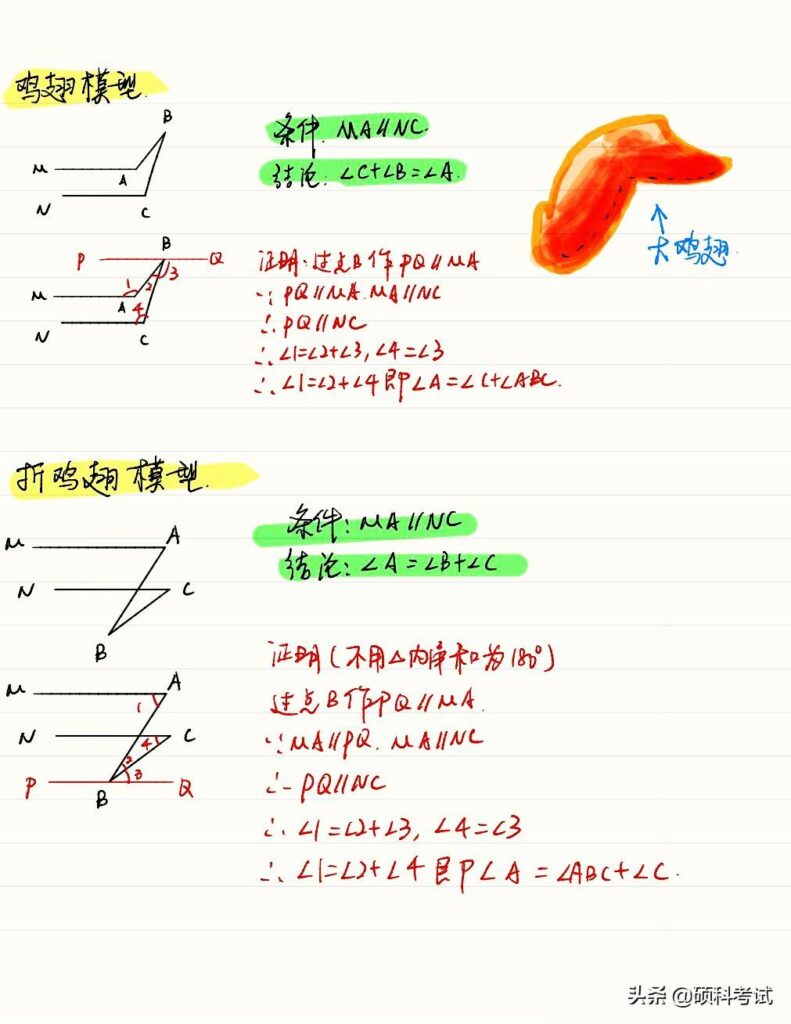 鸡翅模型.
B
M
A
N
C
条件. MA∥NC.
结论: ∠C+∠B=∠A.
大鸡翅.
B
P Q
1 2 3
M
A 4
N
C
证明: 过点B作PQ∥MA
∵PQ∥MA.MA∥NC
∴PQ∥NC
∴∠1=∠2+∠3, ∠4=∠3
∴∠1=∠2+∠4即∠A=∠C+∠ABC.
折鸡翅模型.
M A
N C
B
条件: MA∥NC
结论: ∠A=∠B+∠C
M A
1
N 4 C
2
P 3 Q
B
证明(不用△内角和为180°)
过点B作PQ∥MA.
∵MA∥PQ. MA∥NC
∴PQ∥NC
∴∠1=∠2+∠3, ∠4=∠3
∴∠1=∠2+∠4即∠A=∠ABC+∠C.
头条 @硕科考试